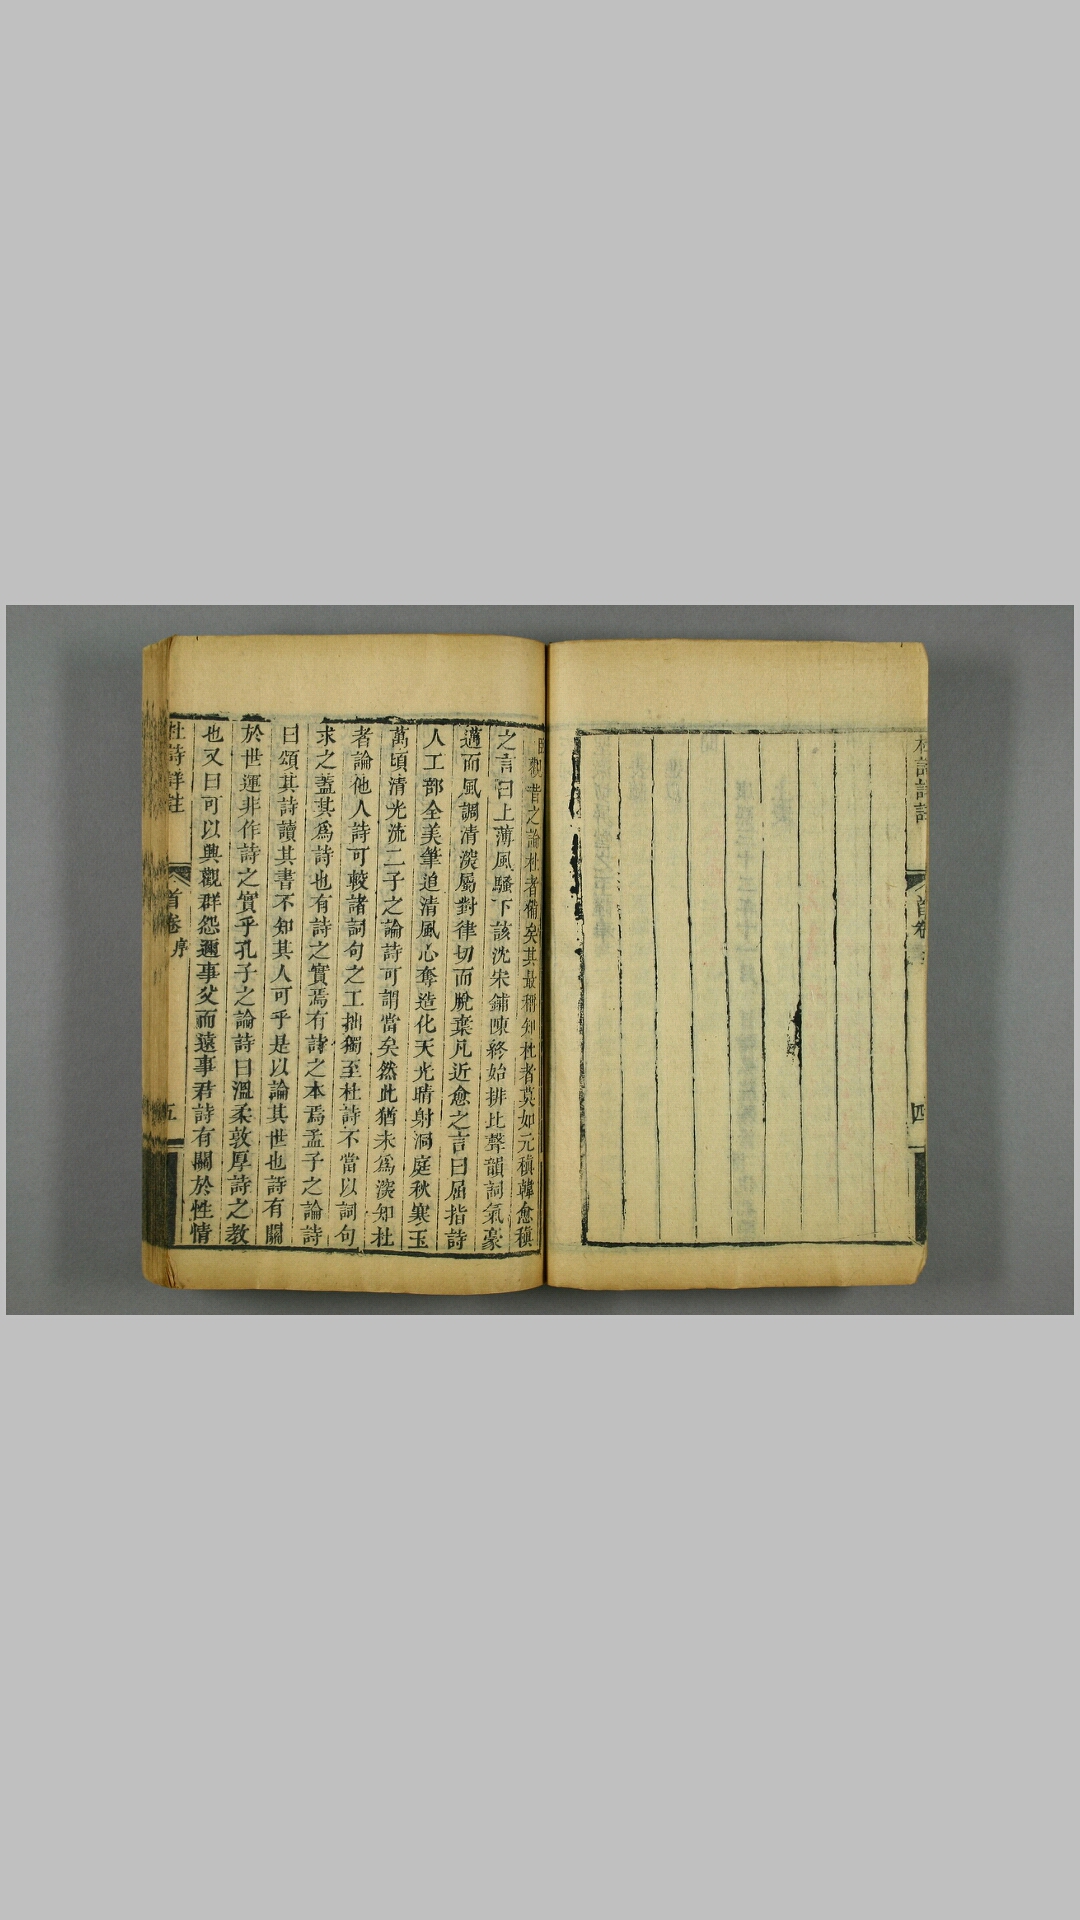 杜詩詳註
首卷
四
臣觀昔之論杜者備矣其最稱知杜者莫如元稹韓愈稹
之言曰上薄風騷下該沈宋鋪陳終始排比聲韻詞氣豪
邁而風調清深屬對律切而脫棄凡近愈之言曰屈指詩
人工部全美筆追清風心奪造化天光晴射洞庭秋寒玉
萬頃清光流二子之論詩可謂當矣然此猶未爲深知杜
者論他人詩可較諸詞句之工拙獨至杜詩不當以詞句
求之蓋其爲詩也有詩之實焉有詩之本焉孟子之論詩
曰頌其詩讀其書不知其人可乎是以論其世也詩有關
於世運非作詩之實乎孔子之論詩曰溫柔敦厚詩之教
也又曰可以興觀群怨邇事父而遠事君詩有關於性情
杜詩詳註
首卷
序
五